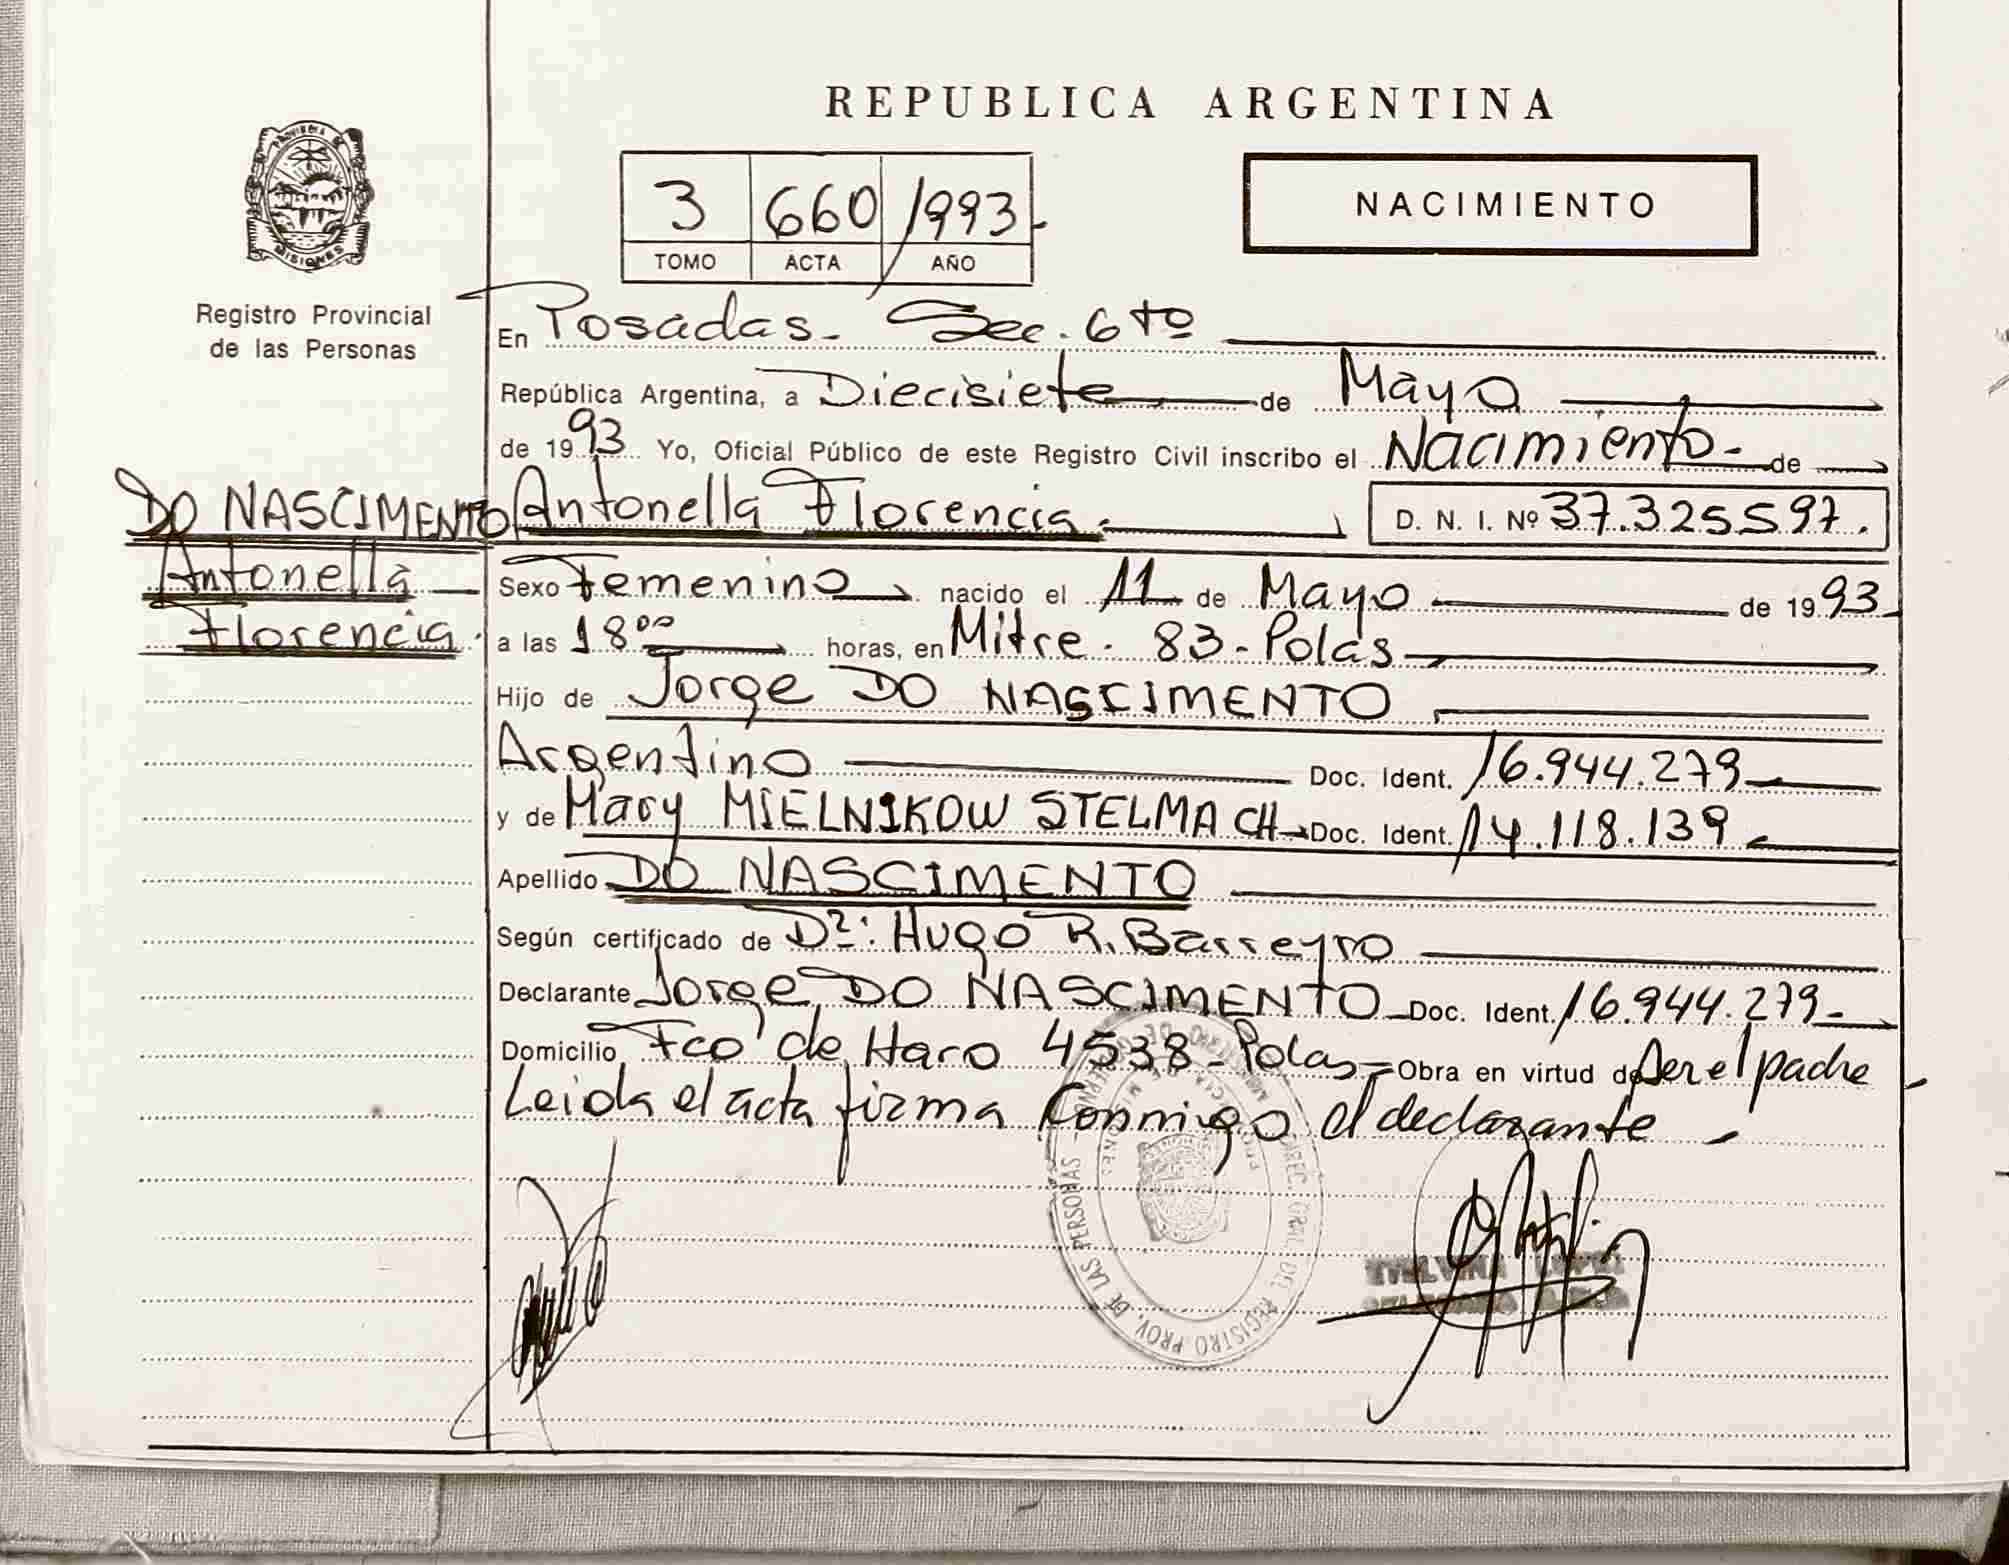 REPUBLICA ARGENTINA
PROVINCIA DE
MISIONES
Registro Provincial
de las Personas
3 660 1993
TOMO ACTA AÑO
NACIMIENTO
En Posadas - Sec. 6to
República Argentina, a Diecisiete de Mayo
de 1993 Yo, Oficial Público de este Registro Civil inscribo el Nacimiento - de
DO NASCIMENTO
Antonella
Florencia.
Antonella Florencia. D. N. I. Nº 37.325.597.
Sexo Femenino nacido el 11 de Mayo de 1993
a las 18⁰⁰ horas, en Mitre - 83 - Pdas
Hijo de Jorge DO NASCIMENTO
Argentino Doc. Ident. 16.944.279
y de Mary MIELNIKOW STELMACH Doc. Ident. 14.118.139
Apellido DO NASCIMENTO
Según certificado de Dr: Hugo R. Barreyro
Declarante Jorge DO NASCIMENTO Doc. Ident. 16.944.279
Domicilio Fco de Haro 4538 - Pdas - Obra en virtud de ser el padre
Leida el acta firma conmigo el declarante
DIREC. GRAL. DEL REGISTRO PROV. DE LAS PERSONAS